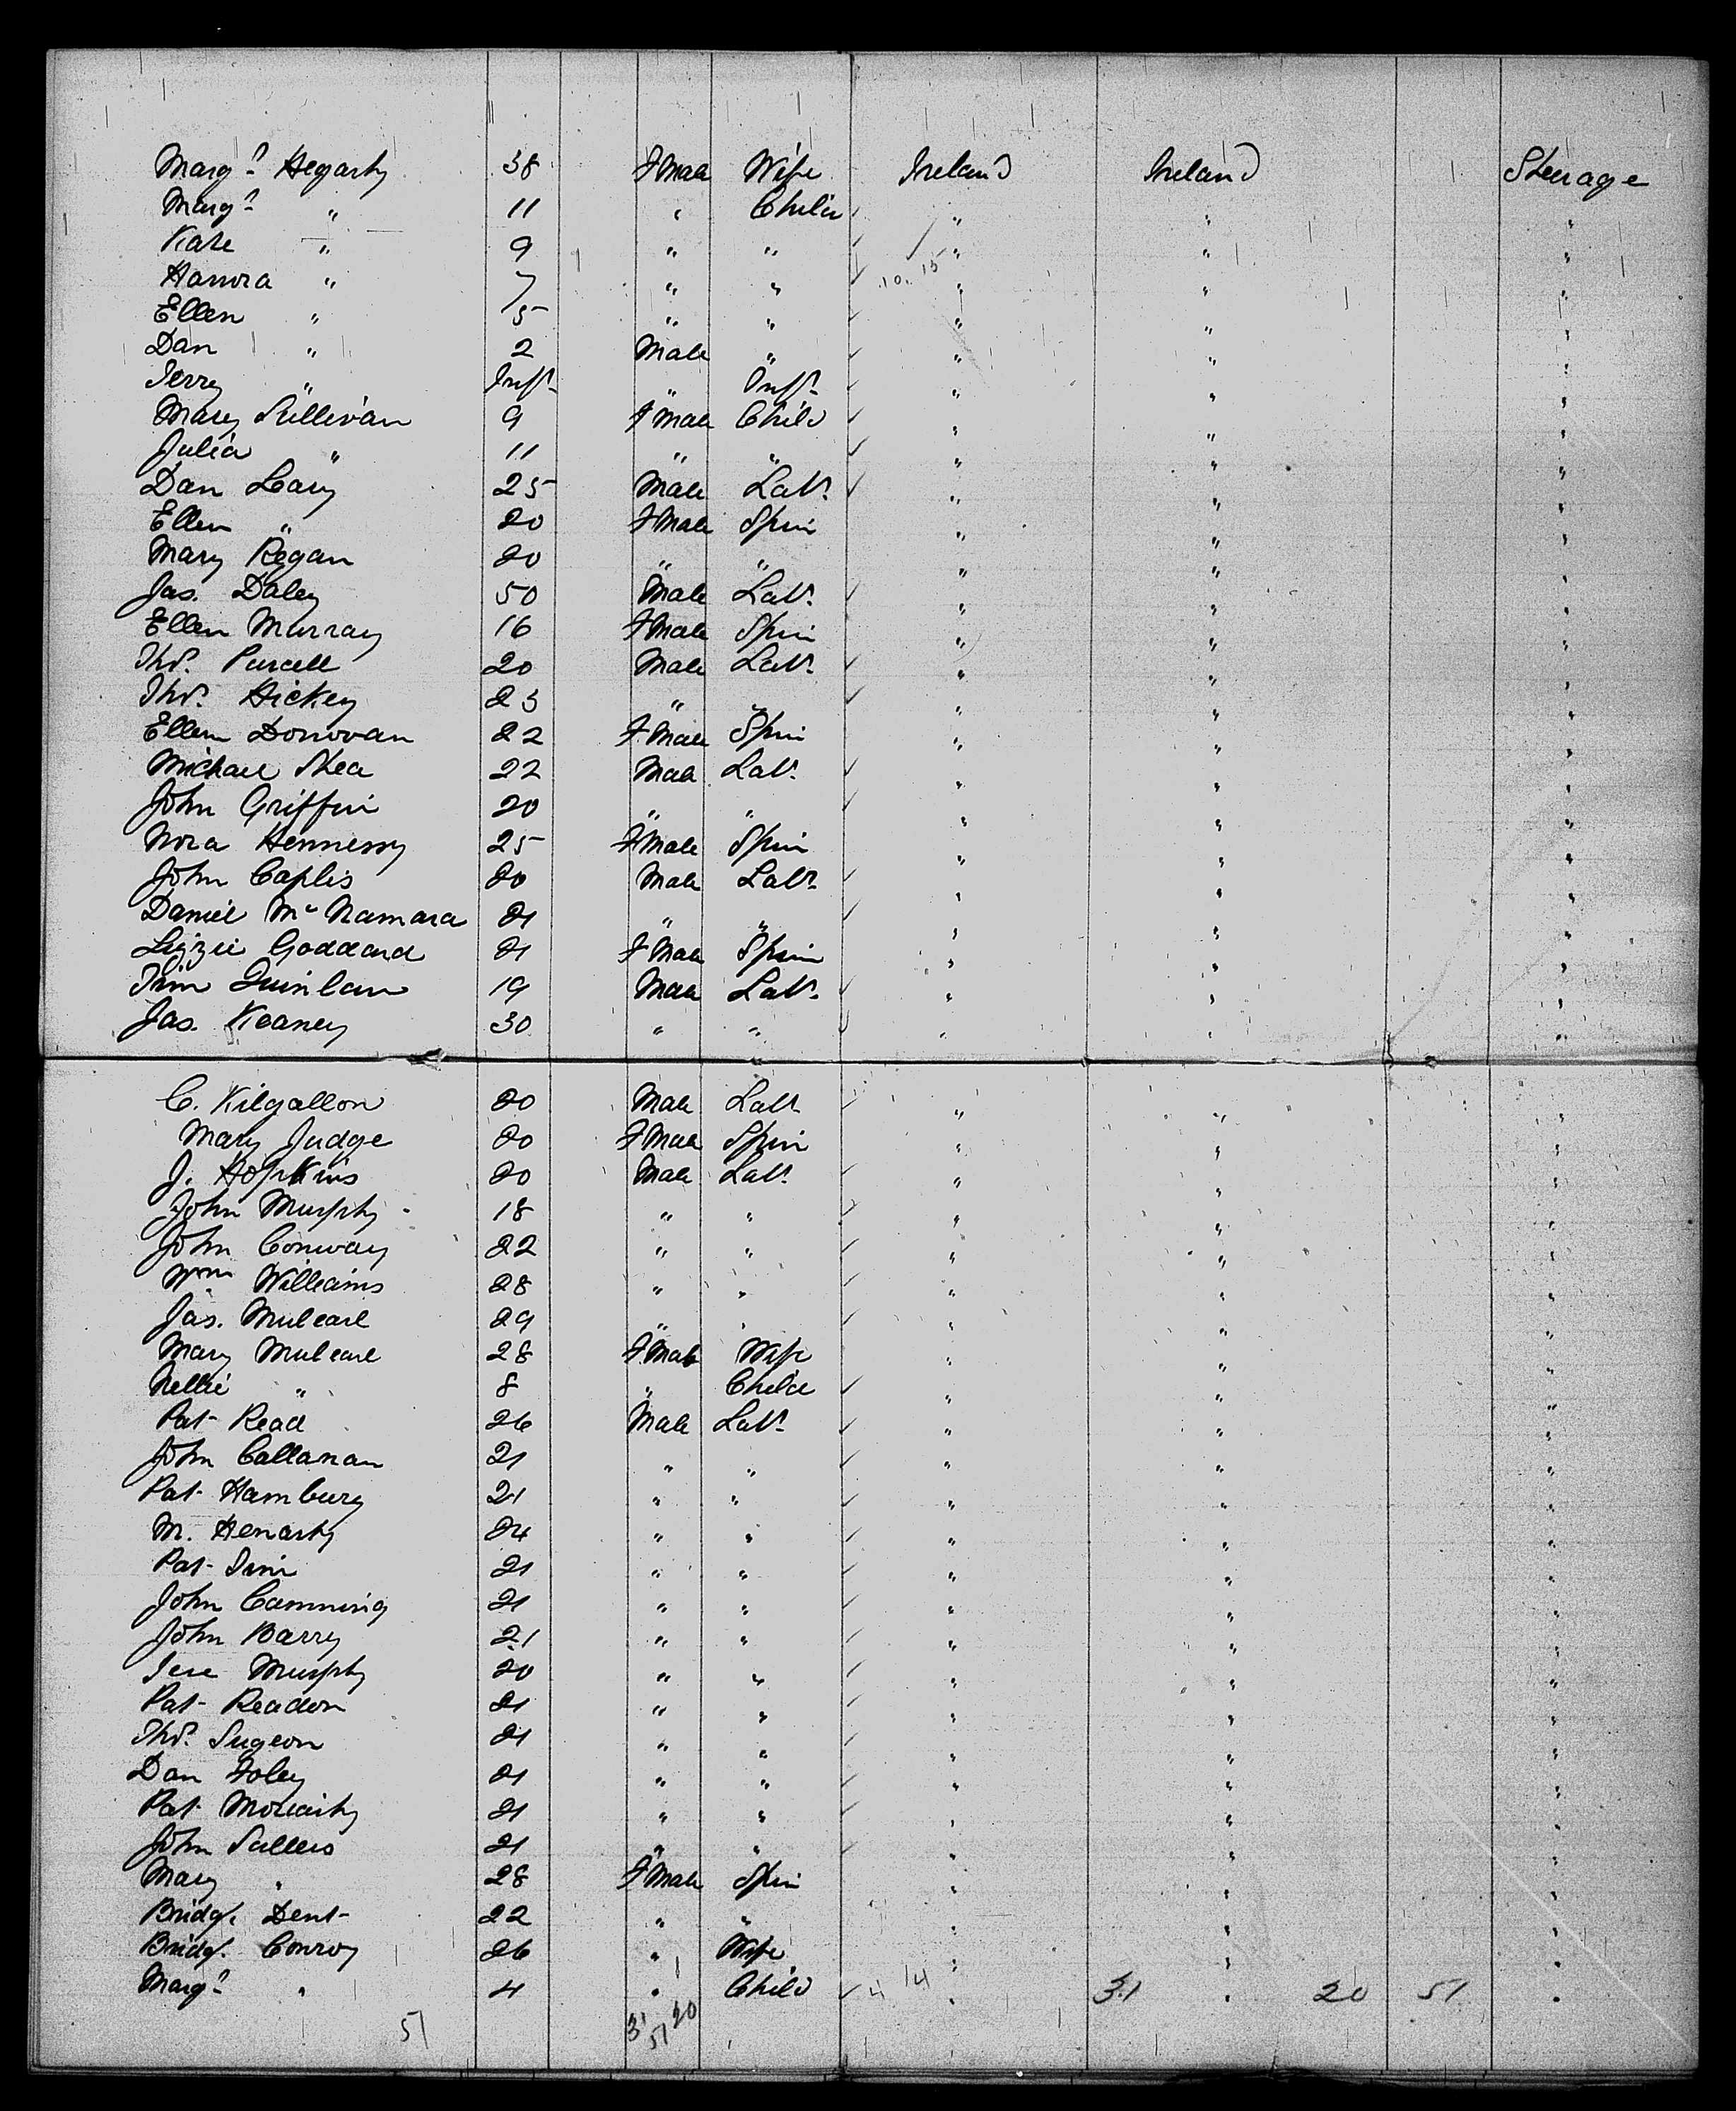 Margt Hegarty 38 Fmale Wife Ireland Ireland Steerage
Margt " 11 " Child " " "
Kate " 9 " " " " "
Hanora " 7 " " 10. 15 " " "
Ellen " 5 " " " " "
Dan " 2 Male " " " "
Jerry " Inft " Inft " " "
Mary Sullivan 9 Fmale Child " " "
Julia " 11 " " " " "
Dan Leary 25 Male Labr " " "
Ellen " 20 Fmale Spin " " "
Mary Regan 20 " " " " "
Jas. Daley 50 Male Labr " " "
Ellen Murray 16 Fmale Spin " " "
Thos. Purcell 20 Male Labr " " "
Thos. Hickey 23 " " " " "
Ellen Donovan 22 Fmale Spin " " "
Michael Shea 22 Male Labr " " "
John Griffin 20 " " " " "
Nora Hennessy 25 Fmale Spin " " "
John Caplis 20 Male Labr " " "
Daniel McNamara 21 " " " " "
Lizzie Goddard 21 Fmale Spin " " "
Tim Quinlan 19 Male Labr " " "
Jas. Keaney 30 " " " " "
C. Kilgallon 20 Male Labr " " "
Mary Judge 20 Fmale Spin " " "
J. Hopkins 20 Male Labr " " "
John Murphy 18 " " " " "
John Conway 22 " " " " "
Wm Williams 28 " " " " "
Jas. Mulcarl 29 " " " " "
Mary Mulcarl 28 Fmale Wife " " "
Nellie " 8 " Child " " "
Pat Read 26 Male Labr " " "
John Callanan 21 " " " " "
Pat Hambury 21 " " " " "
M. Henarty 24 " " " " "
Pat 21 " " " " "
John Camming 21 " " " " "
John Barry 21 " " " " "
Jere Murphy 20 " " " " "
Pat Readon 21 " " " " "
Thos. Sugeon 21 " " " " "
Dan Foley 21 " " " " "
Pat Moriarty 21 " " " " "
John Sullers 21 " " " " "
Mary " 28 Fmale Spin " " "
Bridgt. Dent 22 " " " " "
Bridgt. Conroy 26 " Wife " " "
Margt " 4 " Child 4 14 " 31 " 20 51 "
51 31 20
51